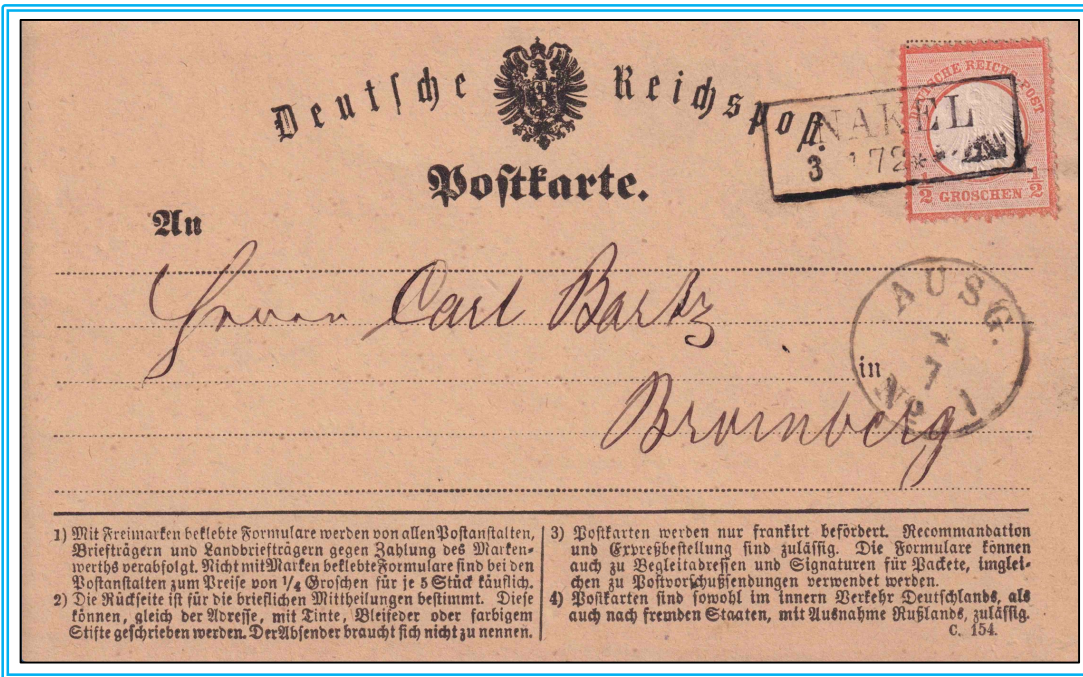 Deutsche Reichspost.
DEUTSCHE REICHS-POST
NAKEL
3 172**
1/2 GROSCHEN 1/2
Postkarte.
An
Herrn Carl Bartz
AUSG.
*
7
No 1
in
Bromberg
1) Mit Freimarken beklebte Formulare werden von allen Postanstalten,
Briefträgern und Landbriefträgern gegen Zahlung des Marken-
werths verabfolgt. Nicht mit Marken beklebte Formulare sind bei den
Postanstalten zum Preise von 1/4 Groschen für je 5 Stück käuflich.
2) Die Rückseite ist für die brieflichen Mittheilungen bestimmt. Diese
können, gleich der Adresse, mit Tinte, Bleifeder oder farbigem
Stifte geschrieben werden. Der Absender braucht sich nicht zu nennen.
3) Postkarten werden nur frankirt befördert. Recommandation
und Expreßbestellung sind zulässig. Die Formulare können
auch zu Begleitadressen und Signaturen für Packete, imglei-
chen zu Postvorschußsendungen verwendet werden.
4) Postkarten sind sowohl im innern Verkehr Deutschlands, als
auch nach fremden Staaten, mit Ausnahme Rußlands, zulässig.
C. 154.